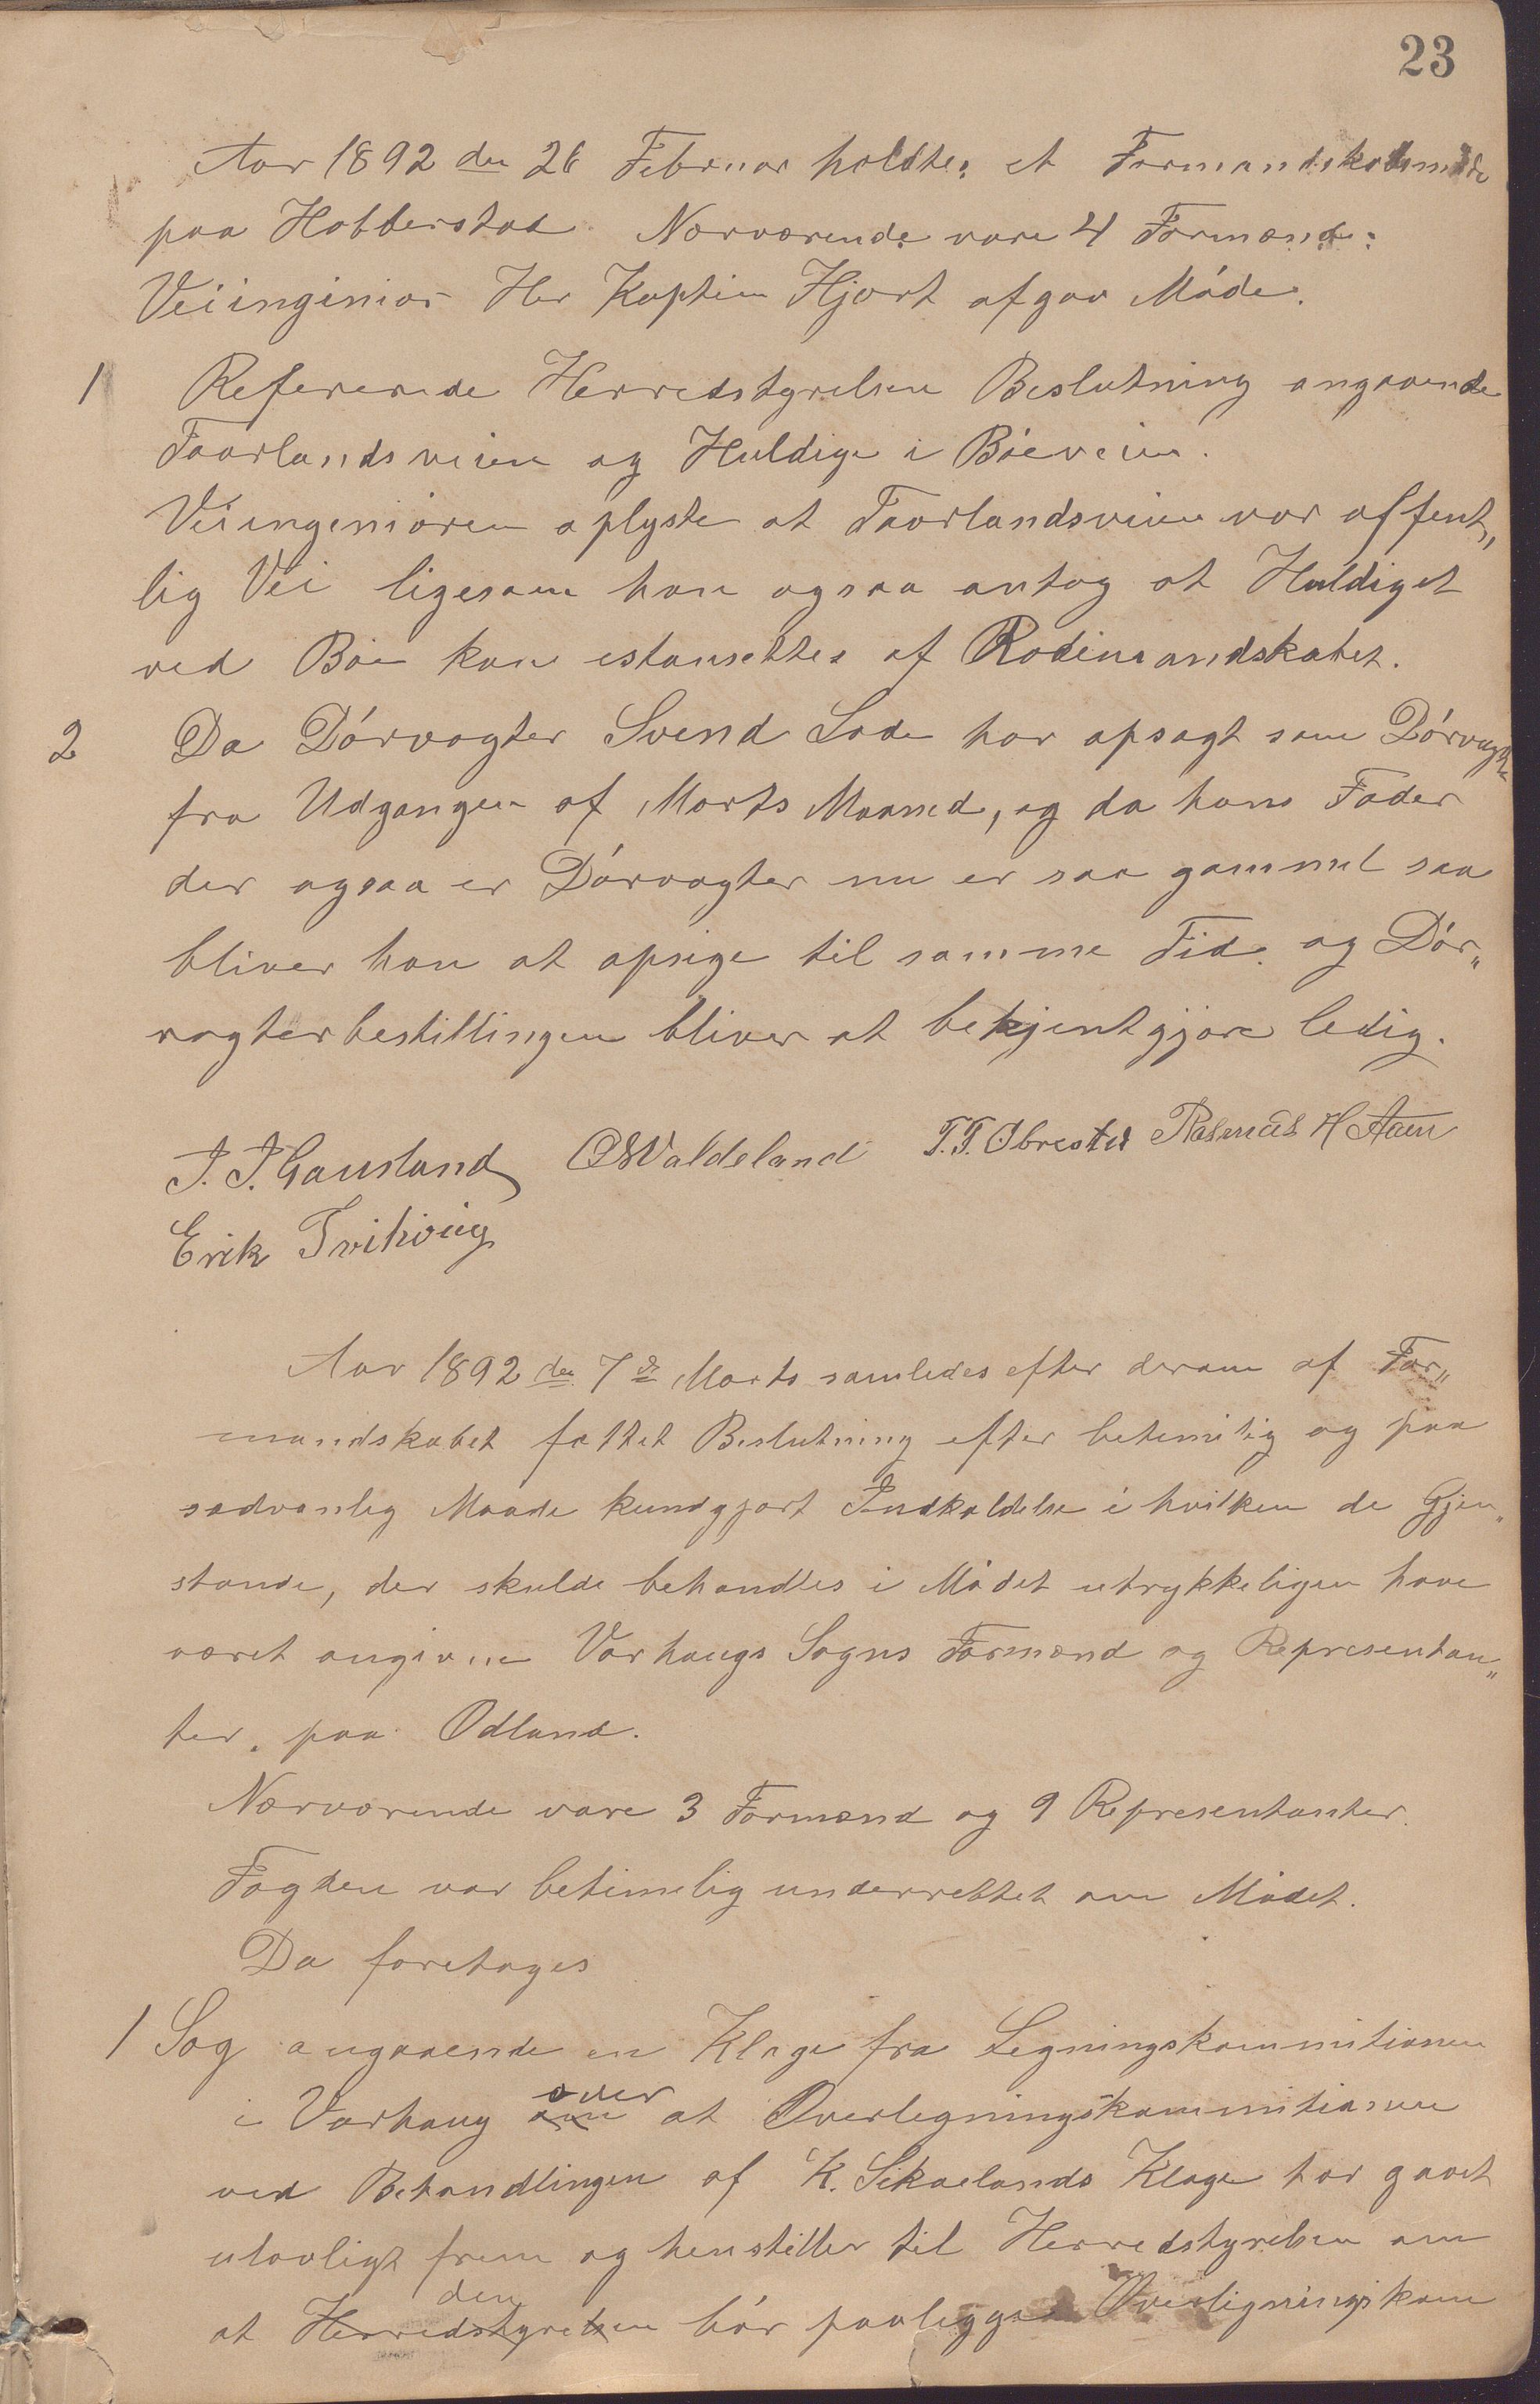 23
Aar 1892 den 26 Februar holdtes et Formandskabsmøde
paa Hobberstad. Nærværende vare 4 Formænd.
Veiinginiør Her Kaptein Hjort afgav Møde.
1 Refererede Herredstyrelsen Beslutning angaaende
Taarlandsveien og Huldige i Bøeveien.
Veiingeniøren oplyste at Taarlandsveien var offent„
lig Vei ligesom han ogsaa antog at Huldiget
ved Bøe kan istansettes af Rodemandskabet.
2 Da Dørvogter Svend Lode har opsagt som Dørvogter
fra Udgangen af Marts Maaned, og da hans Fader
der ogsaa er Dørvogter nu er saa gammel saa
bliver han at opsige til samme Tid. og Dør„
vogterbestillingen bliver at bekjentgjøre ledig.
J. J. Gausland OSValdeland T. T. Obrestad Rasmus H Aam
Erik Tvihoug
Aar 1892 den 7de Marts samledes efter derom af For„
mandskabet fattet Beslutning efter betimlig og paa
sædvanlig Maade kundgjort Indkaldelse i hvilken de Gjen„
stande, der skulde behandles i Mødet utrykkeligen have
været angivne Varhaugs Sogns Formænd og Representan„
ter. paa Odland.
Nærværende vare 3 Formænd og 9 Representanter.
Fogden var betimelig underrettet om Mødet.
Da foretoges
1 Sag angaaende en Klage fra Legningskommitionen
i Varhaug om over at Overlegningskommitionen
ved Behandlingen af K. Sikvelands Klage har gaaet
ulovligt frem og henstiller til Herredstyrelsen om
at Herredstyrelsen den bør paalegges Overligningskom